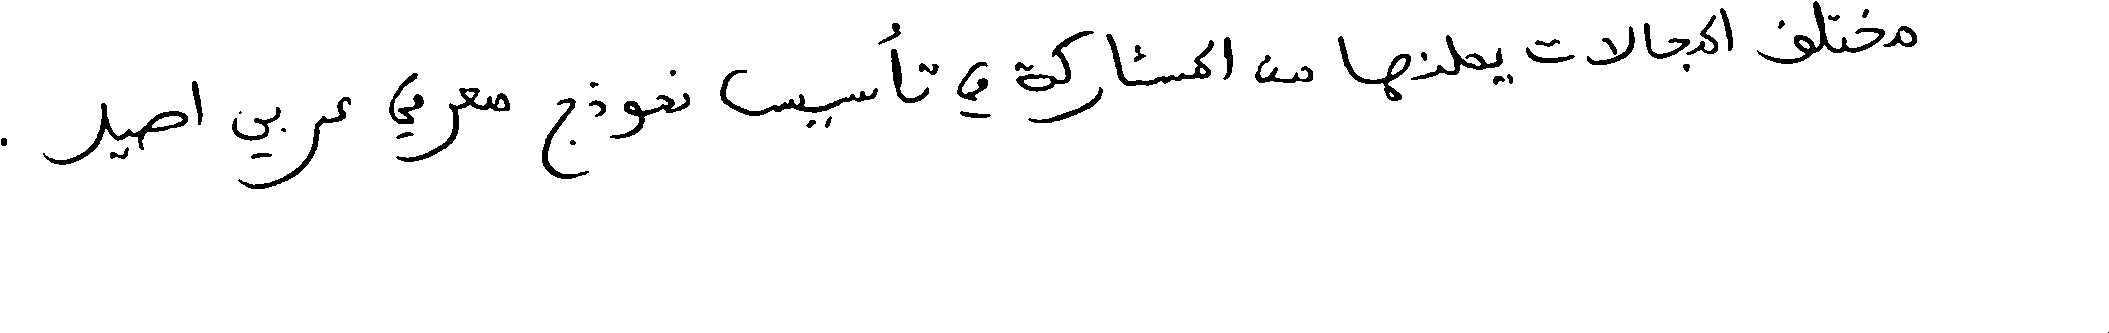 مختلف المجالات يمكنها من المشاركة في تأسيس نموذج معرفي عربي اصيل .